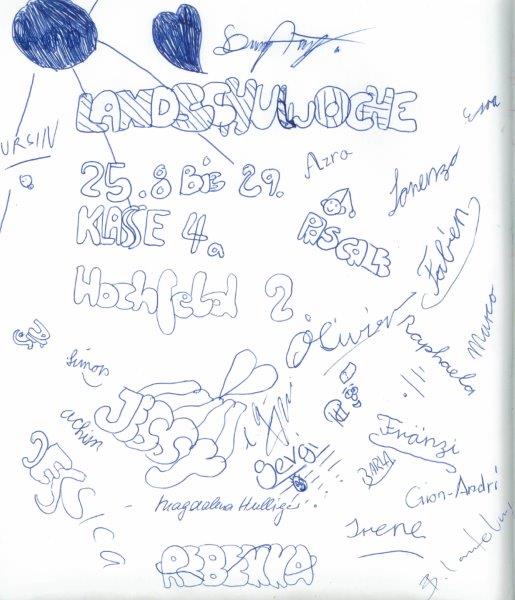 LANDSCHULWOCHE
Esra
URSIN
Azra
Lorenzo
25.8 Bis 29.
KLASSE 4a
PASCALE
Fabien
Hochfeld 2
Olivier
Raphaela
Marco
Simon
JESSY
achim
Sevgi
BARLA
Fränzi
JESSICA
Gion-Andri
Magdalena Hulliger
Irene
REBEKKA